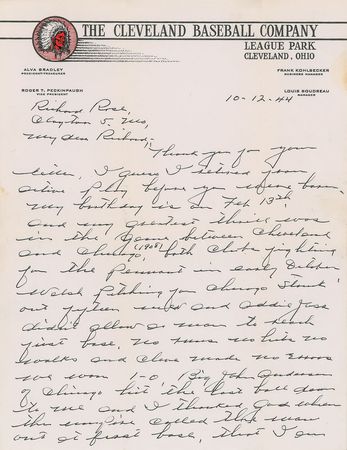 THE CLEVELAND BASEBALL COMPANY
LEAGUE PARK
CLEVELAND, OHIO
ALVA BRADLEY
PRESIDENT-TREASURER
FRANK KOHLBECKER
BUSINESS MANAGER
ROGER T. PECKINPAUGH
VICE PRESIDENT
LOUIS BOUDREAU
MANAGER
10-12-44
Richard Rose,
Clayton 5. Mo,
My dear Richard;
Thank you for your
letter, I guess I retired from
active play before you were born.
My birthday is on Feb 13th.
and my greatest thrill was
in the game between Cleveland
and Chicago, (1908) both clubs fighting
for the pennant in early October
Walsh pitching for Chicago struck
out fifteen men and Addie Joss
didn't allow a man to reach
first base. no runs no hits no
walks and Cleve made no errors
we won 1-0. Big John Anderson
of Chicago hit the last ball down
to me and I thanked God when
the umpire called that man
out at first base, that I am